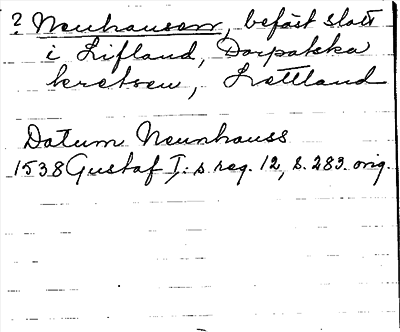 ? Neuhausen, befäst slott
i Lifland, Dorpatska
kretsen, Lettland
Datum Neunhauss
1538 Gustaf I:s reg. 12, s. 283. orig.